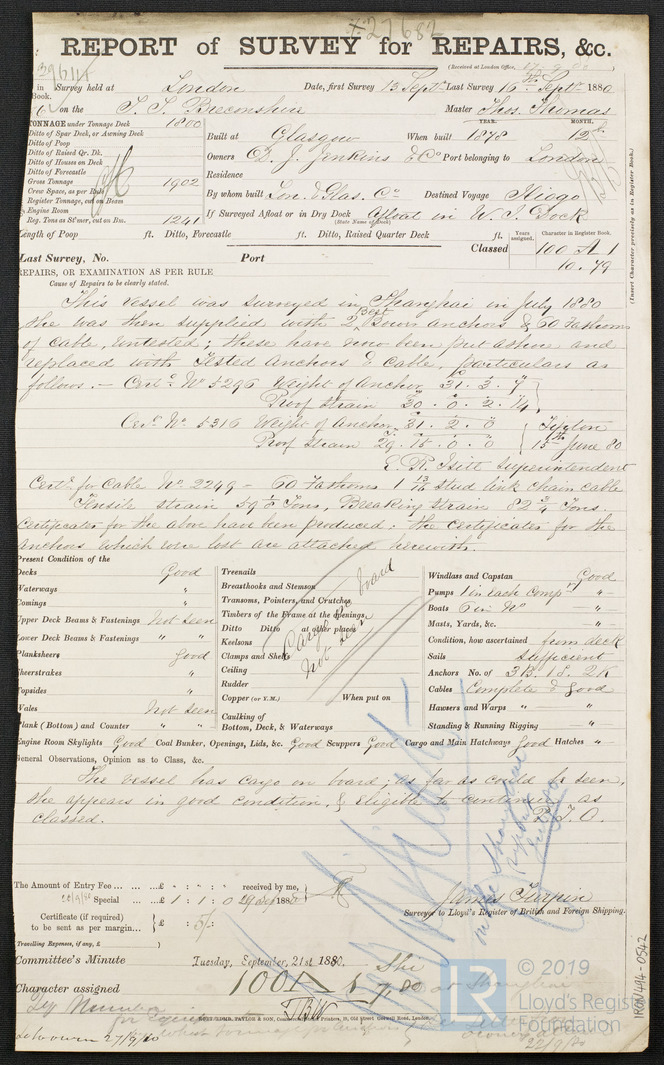 27682
REPORT of SURVEY for REPAIRS, &c.
(Received at London Office,
in Survey held at London Date, first Survey 13 Septr Last Survey 16th Septr 1880
Book.
on the S. S. Breconshire Master Thos. Thomas
TONNAGE under Tonnage Deck 1800
YEAR. MONTH.
Ditto of Spar Deck, or Awning Deck
Built at Glasgow When built 1878 12
Ditto of Poop
Ditto of Raised Qr. Dk.
Owners D. J. Jenkins & Co Port belonging to London
Ditto of Houses on Deck
Ditto of Forecastle
Residence
Gross Tonnage 1902
Crew Space, as per Rule
By whom built Lon. & Glas. Co Destined Voyage Hiogo
Register Tonnage, cut on Beam
Engine Room
If Surveyed Afloat or in Dry Dock Afloat in W. I. Dock
(State Name of Dock)
Reg. Tons as St'mer, cut on Bm. 1241
Length of Poop ft. Ditto, Forecastle ft. Ditto, Raised Quarter Deck ft.
Years assigned. Character in Register Book.
Last Survey, No. Port Classed 100 A 1
10.79
(Insert Character precisely as in Register Book.)
REPAIRS, OR EXAMINATION AS PER RULE
Cause of Repairs to be clearly stated.
This vessel was surveyed in Shanghai in July 1880
she was then supplied with 2 Best Bower anchors & 60 fathoms
of cable, untested; these have now been put ashore and
replaced with Tested Anchors & Cable, particulars as
follows.— Certe No 5296 Weight of Anchor 31.3.7
Proof Strain 30.0.2.14
Certe No 5316 Weight of Anchor 31.2.0 Tipton
Proof Strain 29.15.0.0 15th June 80
Superintendent
Certe for Cable No 2249 - 60 Fathoms 1 13/16 stud link chain cable
Tensile strain 59 1/8 Tons, Breaking Strain 82 3/4 Tons.
Certificates for the above have been produced: the Certificates for the
anchors which were lost are attached herewith.
Present Condition of the
Decks Good
Waterways "
Comings "
Upper Deck Beams & Fastenings Not seen
Lower Deck Beams & Fastenings " "
Planksheers Good
Sheerstrakes "
Topsides "
Wales Not seen
Plank (Bottom) and Counter " "
Treenails
Breasthooks and Stemson
Transoms, Pointers, and Crutches
Timbers of the Frame at the openings
Ditto Ditto at other places
Keelsons
Clamps and Shelfs
Ceiling
Rudder
Copper (or Y.M.) When put on
Caulking of
Bottom, Deck, & Waterways
Cargo on board
not seen
Windlass and Capstan Good
Pumps 1 in each Compt "
Boats 6 in No "
Masts, Yards, &c. "
Condition, how ascertained from deck
Sails Sufficient
Anchors No. of 3B. 1S. 2K
Cables Complete & Good
Hawsers and Warps " "
Standing & Running Rigging "
Engine Room Skylights Good Coal Bunker, Openings, Lids, &c. Good Scuppers Good Cargo and Main Hatchways Good Hatches "
General Observations, Opinion as to Class, &c.
The vessel has cargo on board; as far as could be seen,
she appears in good condition, & eligible to continue as
classed. P.T.O.
on the Shanghai
report
The Amount of Entry Fee ... ... ...£ " : " : " received by me,
Special ... ...£ 1 : 1 : 0 29 Sep 1880
Certificate (if required)
to be sent as per margin... £ 5/-:
James Turpin
Surveyor to Lloyd's Register of British and Foreign Shipping.
Travelling Expenses, if any, £
Committee's Minute Tuesday, September, 21st 1880.
Character assigned 100A1 7,80 at Shanghai
27/9/80
22/9/80
© 2019
LR
Lloyd's Register
Foundation
IRON494-0542